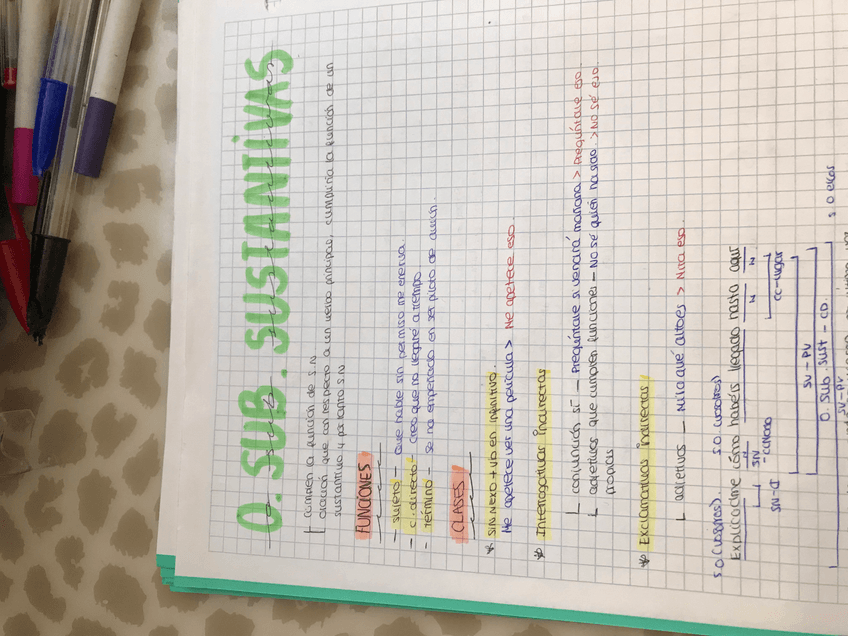 O. SUB. SUSTANTIVAS
cumplen la función de S.N
oración que con respecto a un verbo principal, cumpliría la función de un
sustantivo y por tanto S.N
FUNCIONES
- sujeto - Que hable sin permiso me enerva.
- C. directo - Creo que no llegaré a tiempo
- Término - Se ha empeñado en ser piloto de avión.
CLASES
* SIN NEXO + vb en infinitivo.
Me apetece ver una película > Me apetece eso.
* Interrogativas indirectas
conjunción si - Pregúntale si vendrá mañana > Pregúntale eso.
adjetivos que cumplen funciones - No sé quién ha sido. > No sé eso.
propias
* Exclamativas indirectas
adjetivos - Mira qué autores > Mira eso.
S.O (vosotros) S.O (vosotros)
Explicadme cómo habéis llegado hasta aquí
N N N
SN
SN - CI
CC-lugar
SV - PV
O. Sub. Sust - CD.
SV - PV
S.O ellos